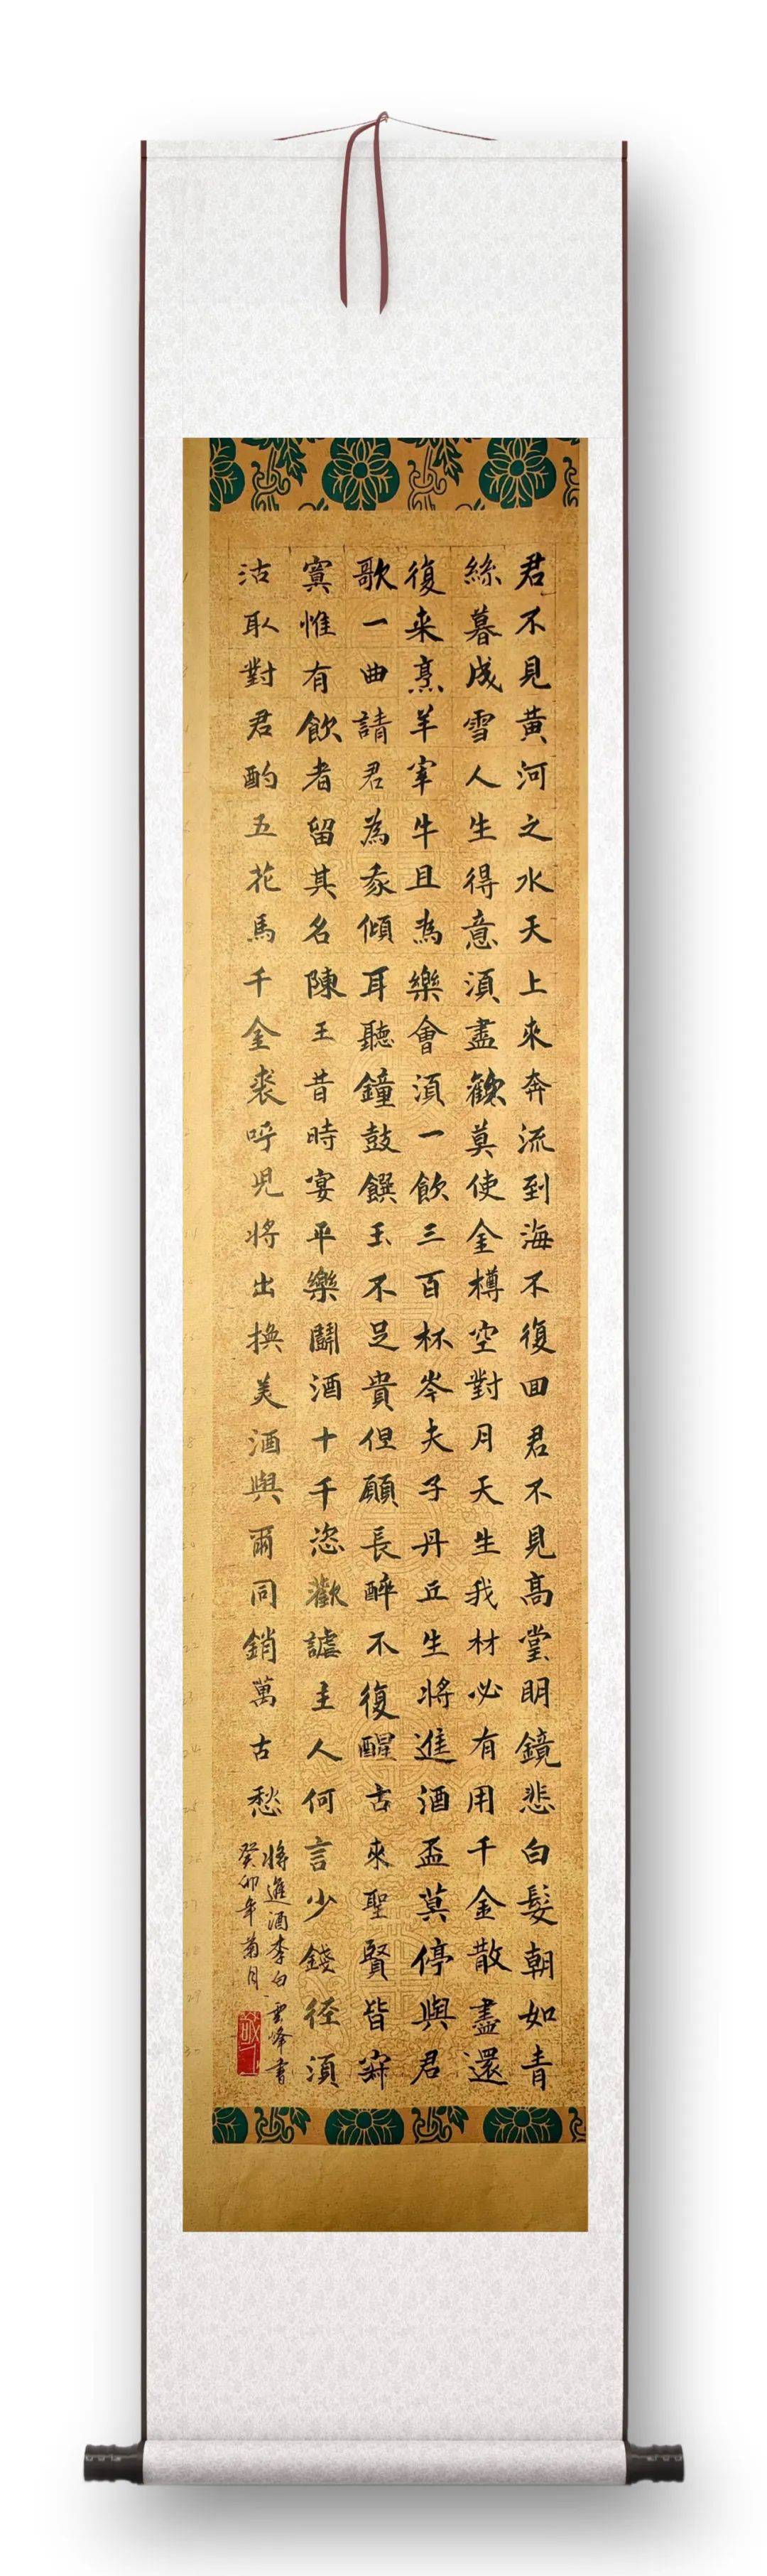 君不見黃河之水天上來奔流到海不復囬君不見高堂明鏡悲白髮朝如青
絲暮成雪人生得意須盡歡莫使金樽空對月天生我材必有用千金散盡還
復来烹羊宰牛且為樂會須一飲三百杯岑夫子丹丘生將進酒盃莫停與君
歌一曲請君為我傾耳聽鐘鼓饌玉不足貴但願長醉不復醒古來聖賢皆寂
寞惟有飲者留其名陳王昔時宴平樂鬭酒十千恣歡謔主人何言少錢徑須
沽取對君酌五花馬千金裘呼兒將出換美酒與爾同銷萬古愁
將進酒李白雲峰書
癸卯年菊月